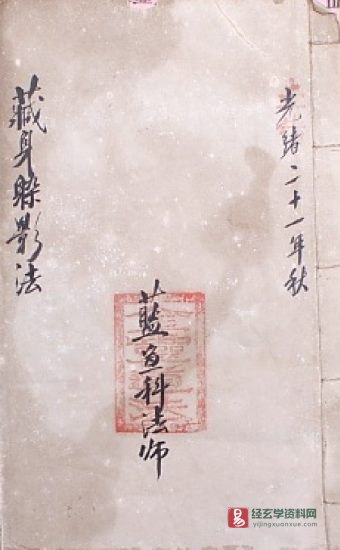 光緒二十一年秋
藍鱼科法师
藏身躲影法
易
经玄学资料网
yijingxuanxue.com